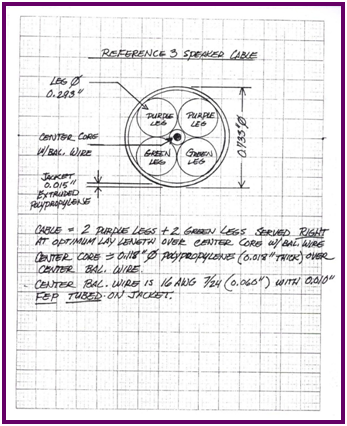 REFERENCE 3 SPEAKER CABLE
LEG Ø
0.293"
PURPLE LEG
PURPLE LEG
CENTER CORE
W/BAL. WIRE
GREEN LEG
GREEN LEG
0.735"Ø
JACKET
0.015"
EXTRUDED
POLYPROPYLENE
CABLE = 2 PURPLE LEGS + 2 GREEN LEGS SERVED RIGHT
AT OPTIMUM LAY LENGTH OVER CENTER CORE W/BAL. WIRE
CENTER CORE = 0.118" Ø POLYPROPYLENE (0.018" THICK) OVER
CENTER BAL. WIRE.
CENTER BAL. WIRE IS 16 AWG 7/24 (0.060") WITH 0.010"
FEP TUBED ON JACKET.